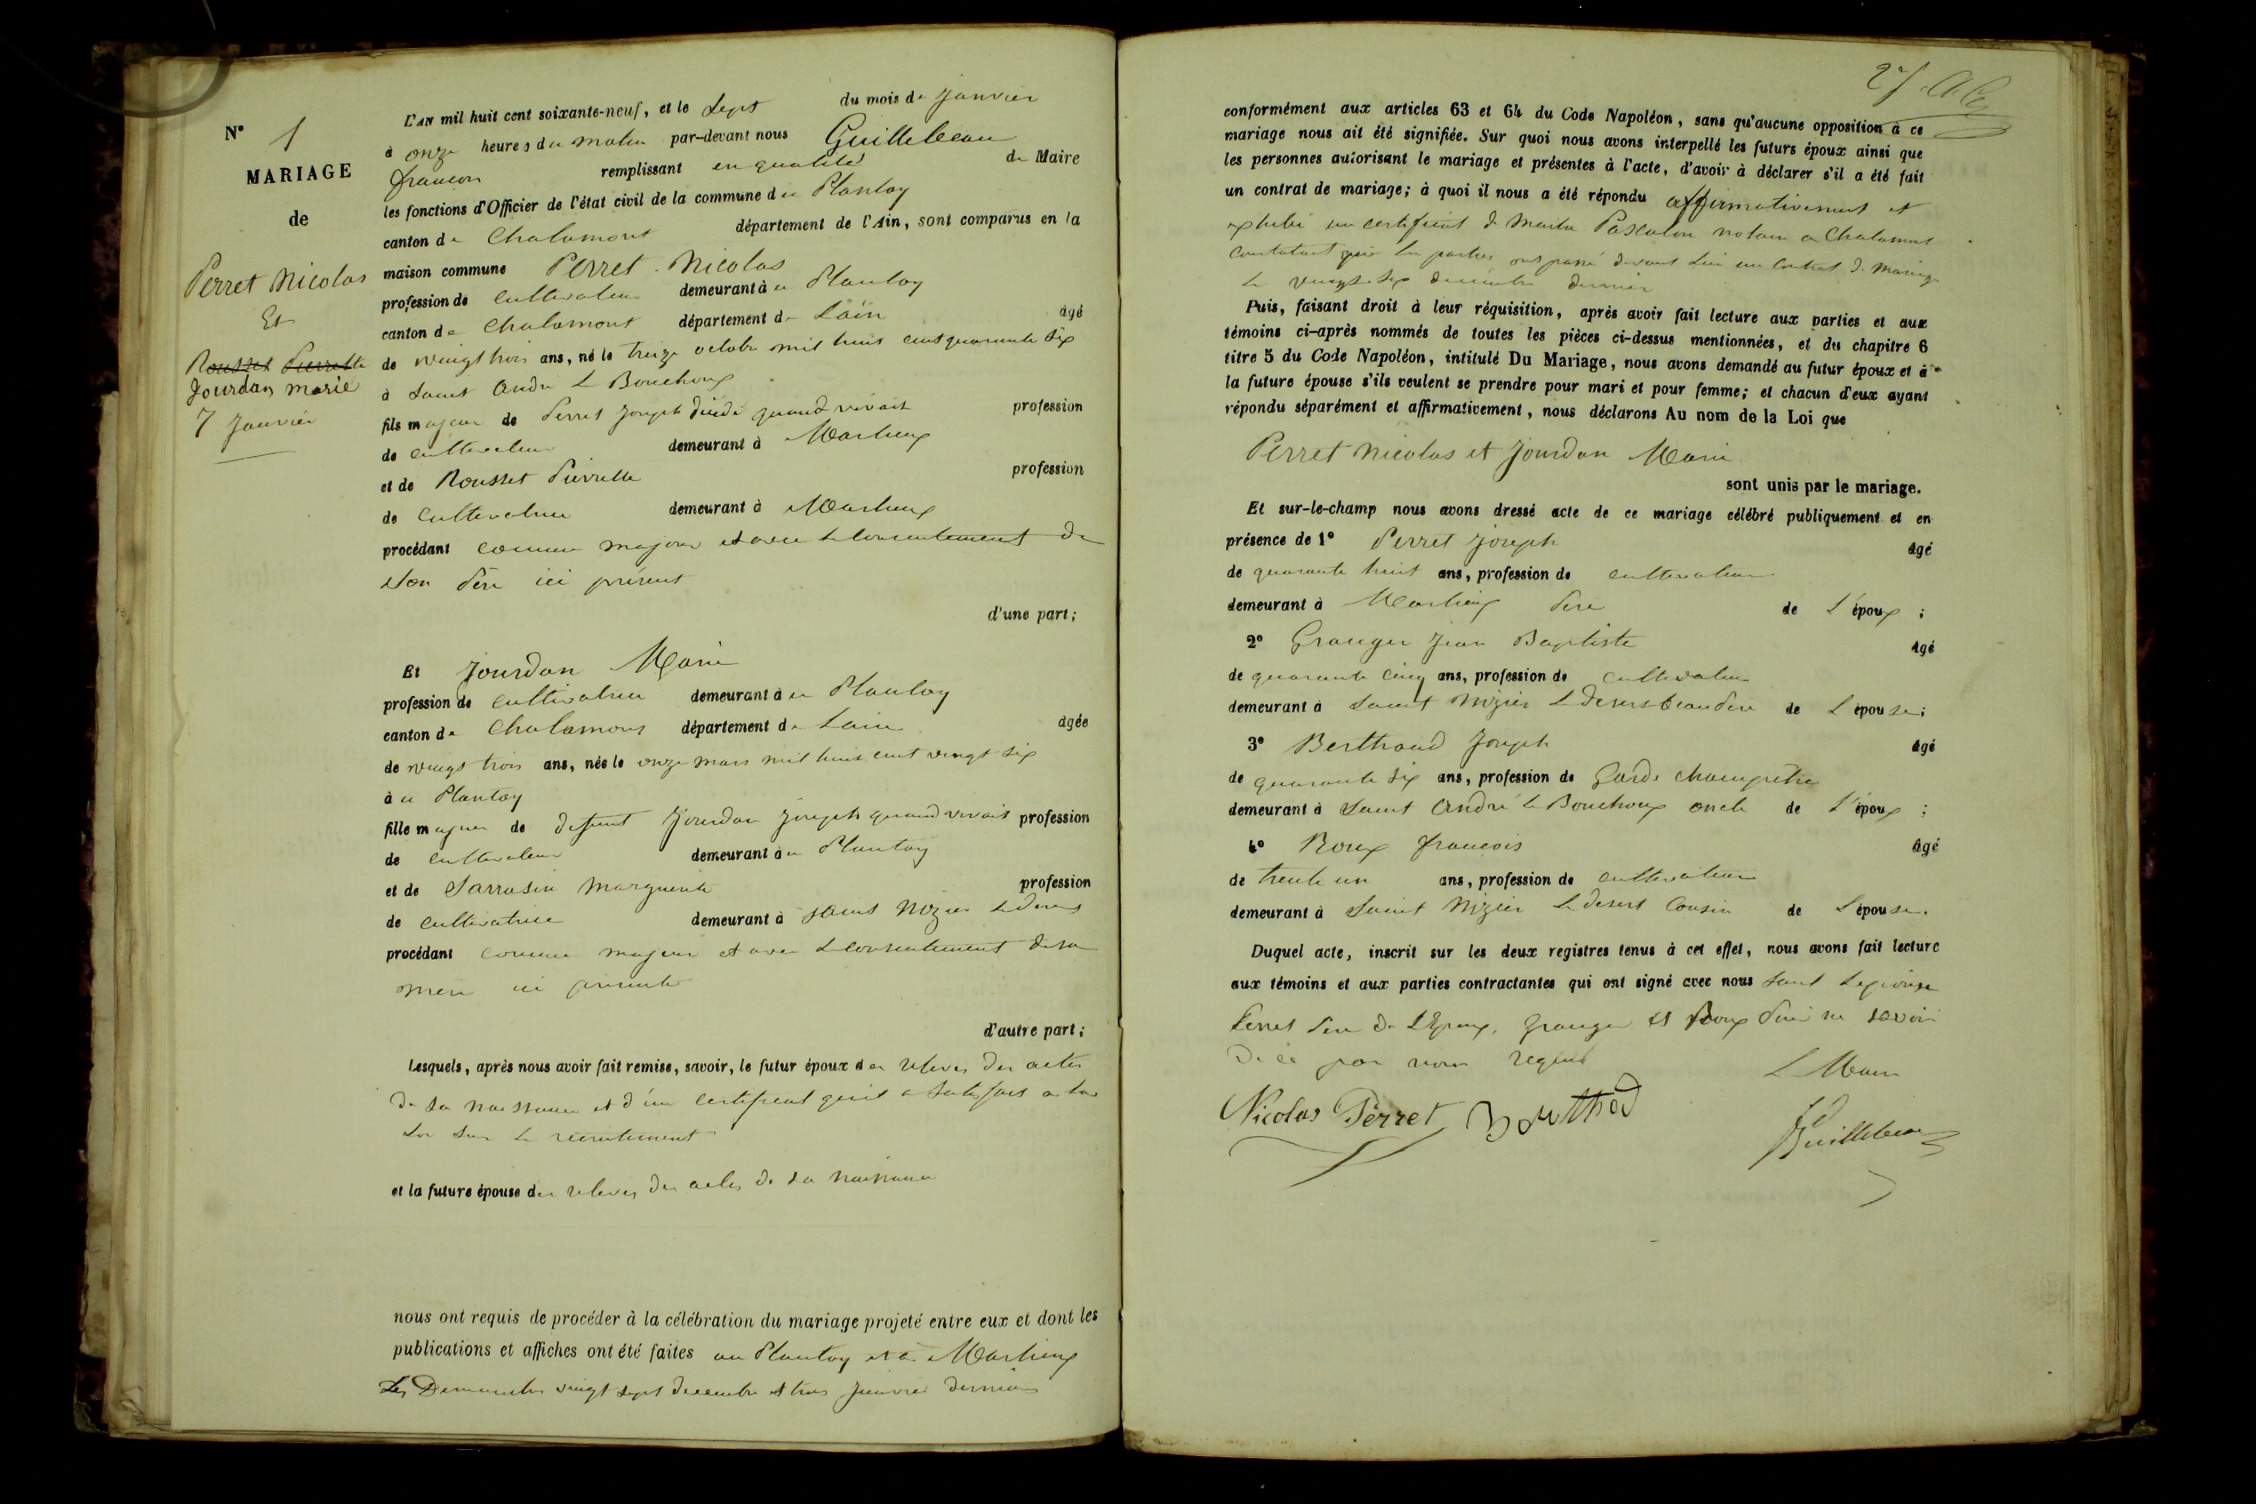 N° 1
MARIAGE
de
Perret Nicolas
Et
Rousset Pierrette
Jourdan Marie
7 Janvier
L'AN mil huit cent soixante-neuf, et le Sept du mois de Janvier
à onze heures du matin par-devant nous Guillebeau
françois remplissant en qualité de Maire
les fonctions d'Officier de l'état civil de la commune du Plantay
canton de Chalamont département de l'Ain, sont comparus en la
maison commune Perret Nicolas
profession de cultivateur demeurant à u Plantay
canton de Chalamont département de Lain âgé
de vingt trois ans, né le treize octobre mil huit cent quarante six
à Saint André le Bouchoux
fils majeur de Perret Joseph quand vivait profession
de cultivateur demeurant à Marlieux
et de Rousset Pierrette profession
de cultivatrice demeurant à Marlieux
procédant comme majeur et avec le consentement de
son Père ici présent
d'une part;
Et Jourdan Marie
profession de cultivatrice demeurant à u Plantay
canton de Chalamont département de Lain âgée
de vingt trois ans, née le onze mars mil huit cent vingt six
à u Plantay
fille majeure de defunt Jourdan Joseph quand vivait profession
de cultivateur demeurant à u Plantay
et de Sarrasin Marguerite profession
de cultivatrice demeurant à Saint Nizier le Desert
procédant comme majeure et avec le consentement de sa
mère ici présente
d'autre part;
Lesquels, après nous avoir fait remise, savoir, le futur époux des relevés des actes
de sa naissance et d'un certificat qu'il a satisfait a la
loi sur le recrutement
et la future épouse des relevés des actes de sa naissance
nous ont requis de procéder à la célébration du mariage projeté entre eux et dont les
publications et affiches ont été faites au Plantay et à Marlieux
Les Dimanches vingt sept decembre et trois Janvier derniers
conformément aux articles 63 et 64 du Code Napoléon, sans qu'aucune opposition à ce
mariage nous ait été signifiée. Sur quoi nous avons interpellé les futurs époux ainsi que
les personnes autorisant le mariage et présentes à l'acte, d'avoir à déclarer s'il a été fait
un contrat de mariage; à quoi il nous a été répondu affirmativement et
exhibé un certificat de Maitre Pascalon notaire a Chalamont
constatant que les parties ont passé devant lui un contrat de mariage
le vingt six décembre dernier
Puis, faisant droit à leur réquisition, après avoir fait lecture aux parties et aux
témoins ci-après nommés de toutes les pièces ci-dessus mentionnées, et du chapitre 6
titre 5 du Code Napoléon, intitulé Du Mariage, nous avons demandé au futur époux et à
la future épouse s'ils veulent se prendre pour mari et pour femme; et chacun d'eux ayant
répondu séparément et affirmativement, nous déclarons Au nom de la Loi que
Perret Nicolas et Jourdan Marie
sont unis par le mariage.
Et sur-le-champ nous avons dressé acte de ce mariage célébré publiquement et en
présence de 1° Perret Joseph âgé
de quarante huit ans, profession de cultivateur
demeurant à Marlieux Père de L'époux;
2° Granger Jean Baptiste âgé
de quarante cinq ans, profession de cultivateur
demeurant à Saint Nizier le Desert de L'épouse;
3° Berthoud Joseph âgé
de quarante six ans, profession de Garde champêtre
demeurant à Saint André le Bouchoux oncle de l'époux;
4° Roux françois âgé
de trente un ans, profession de cultivateur
demeurant à Saint Nizier le Desert Cousin de L'épouse.
Duquel acte, inscrit sur les deux registres tenus à cet effet, nous avons fait lecture
aux témoins et aux parties contractantes qui ont signé avec nous sauf L'epouse
Perret Père de L'Epoux, Granger et Roux pour ne savoir
De ce par nous requis
Le Maire
Nicolas Perret
Guillebeau